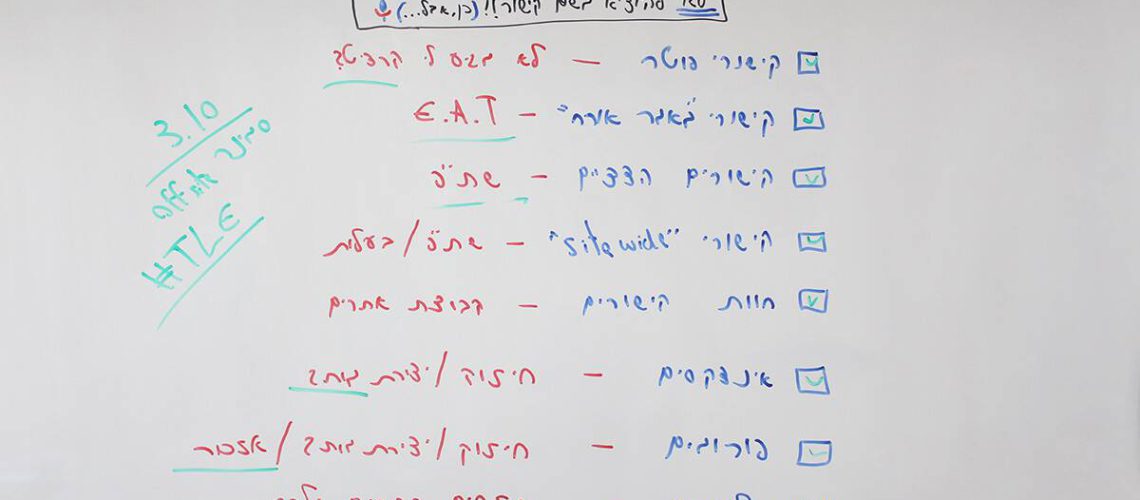 קישור?! (כן, אבל...)
קישורי פוטר — לא מגיע לי קרדיט?
קישורי "מאמר אורח" — E.A.T
קישורים הדדיים — שת"פ
קישורי "Sitewide" — שת"פ/בעלות
חוות קישורים — קבוצת אתרים
אינדקסים — חיזוק/יצירת מותג
פורומים — חיזוק/יצירת מותג/אזכור
3.10
#TLE